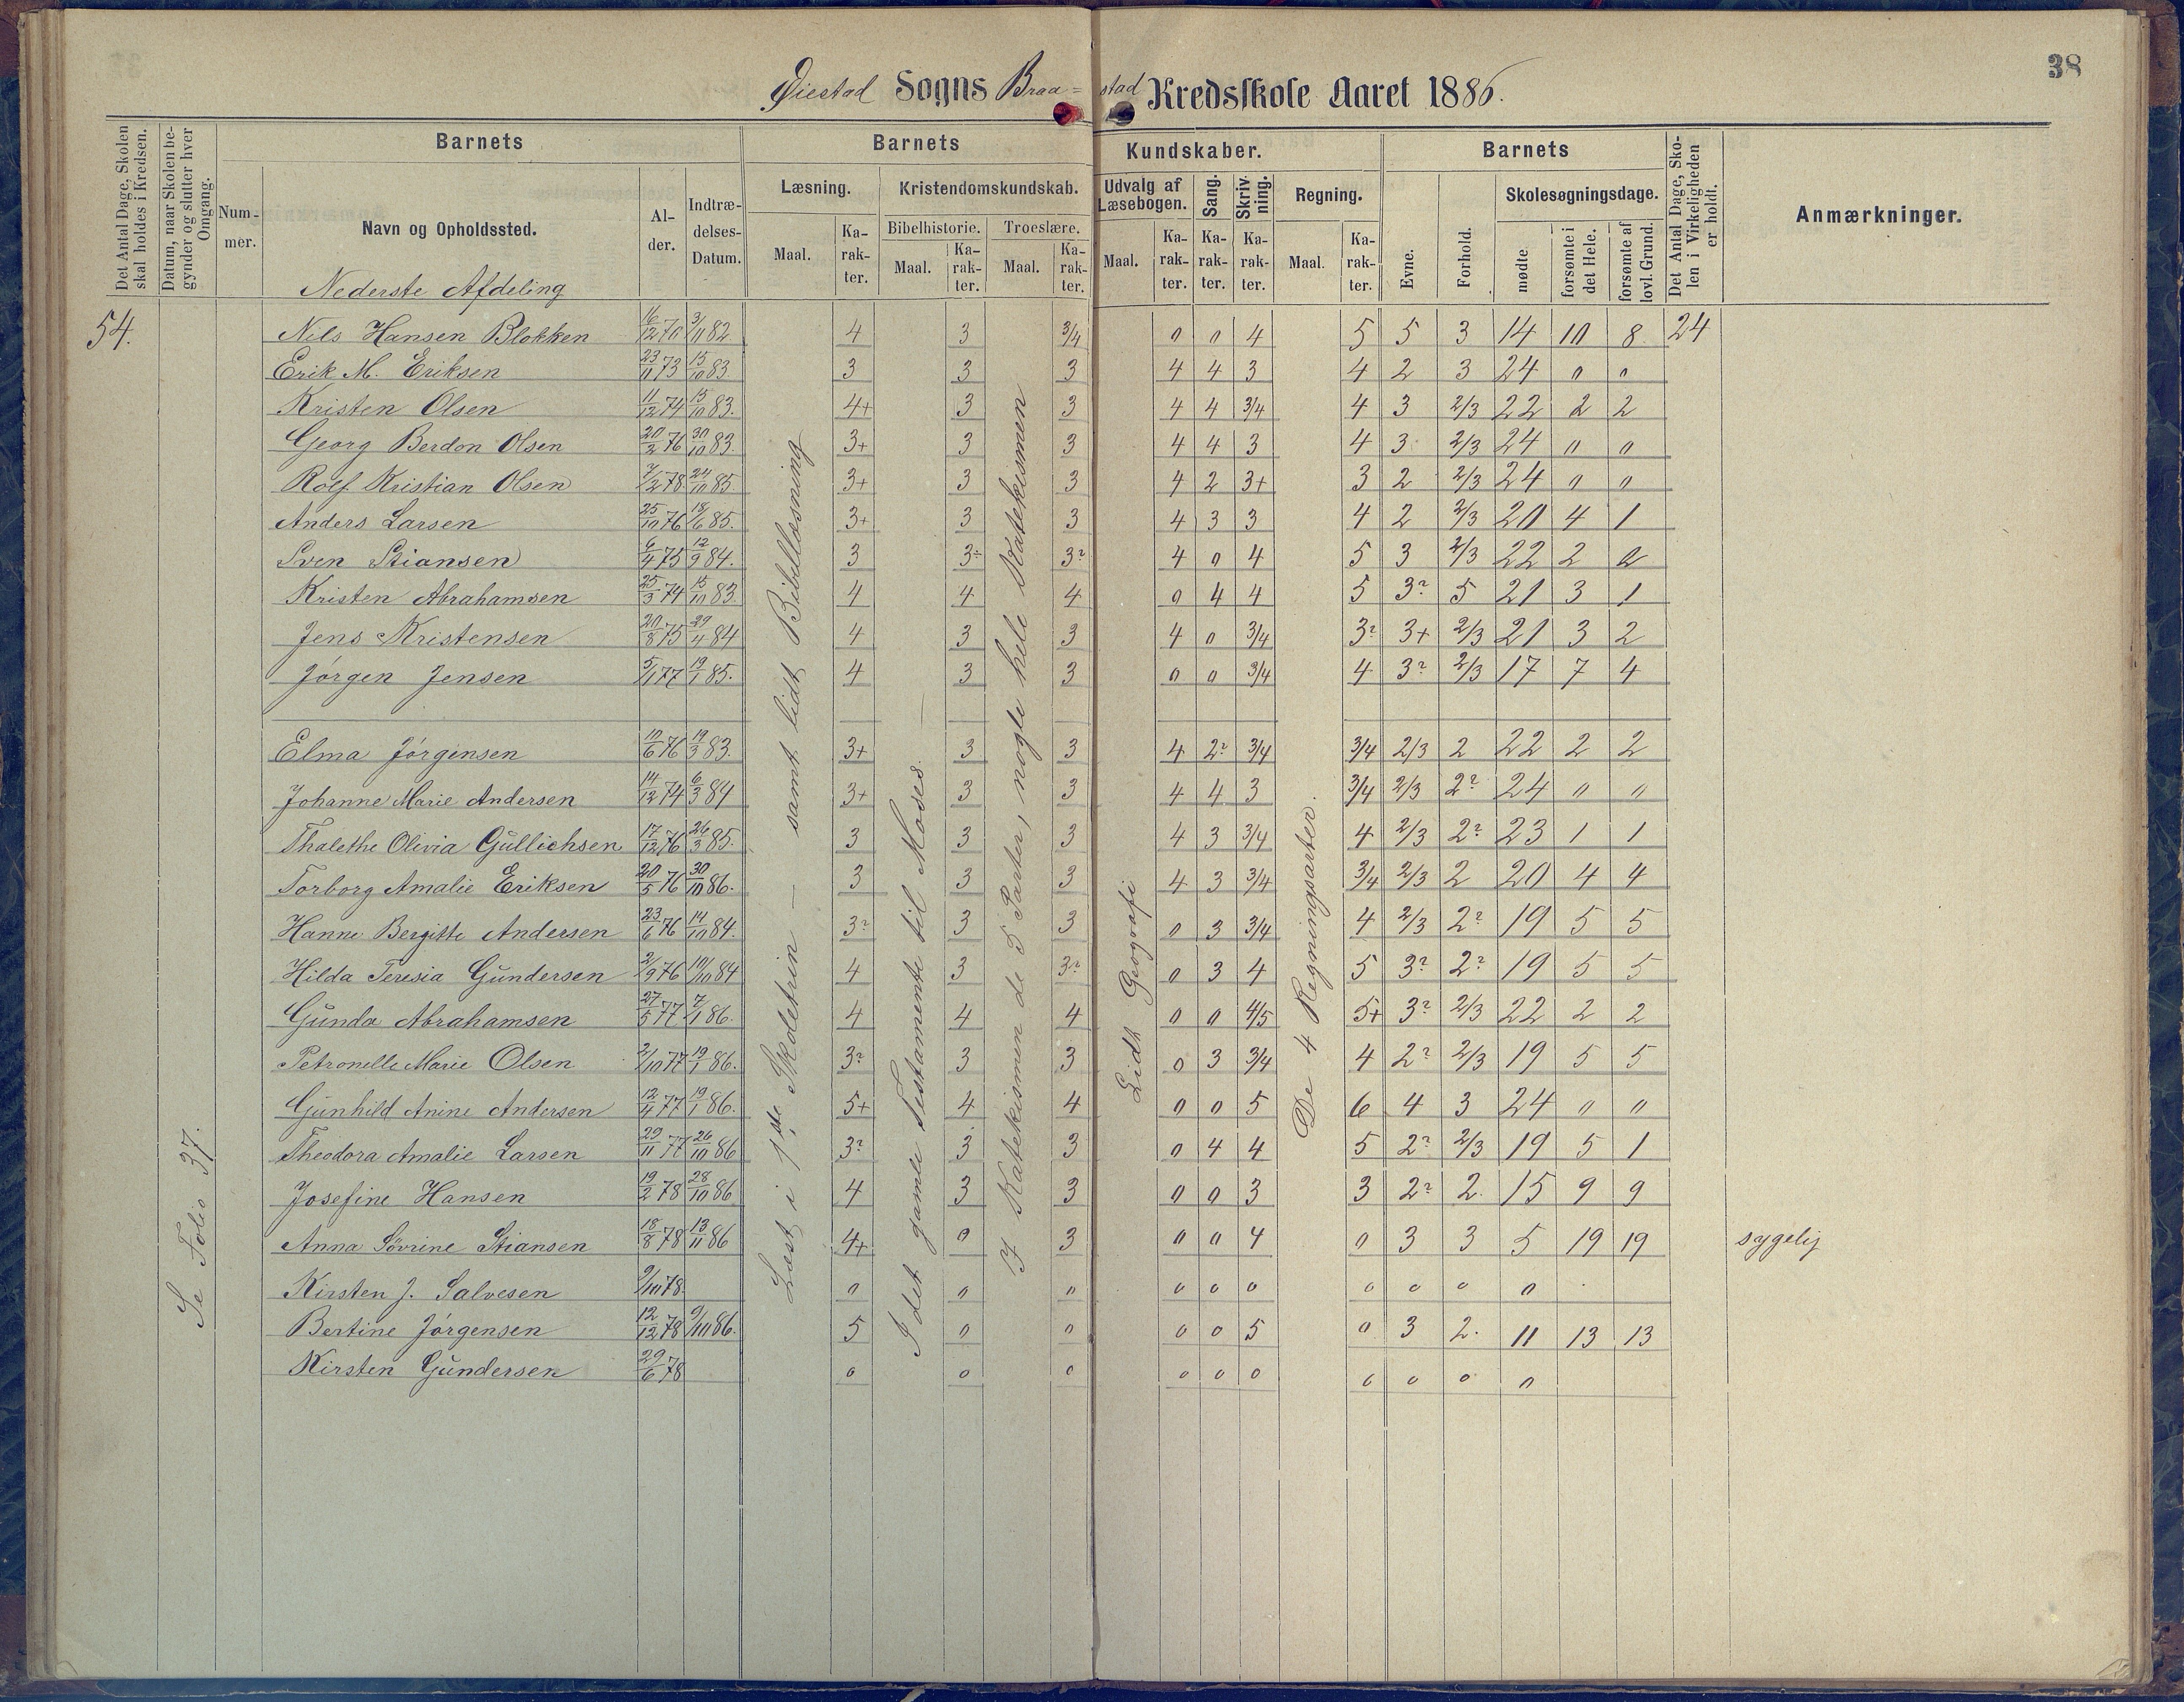 38
Øiestad Sogns Braa=stad Kredsskole Aaret 1886.
Det Antal Dage, Skolen skal holdes i Kredsen.
Datum, naar Skolen begynder og slutter hver Omgang.
Barnets
Nummer.
Navn og Opholdssted.
Alder.
Indtrædelses-Datum.
Barnets Kundskaber.
Læsning.
Maal.
Karakter.
Kristendomskundskab.
Bibelhistorie.
Maal.
Karakter.
Troeslære.
Maal.
Karakter.
Udvalg af Læsebogen.
Maal.
Karakter.
Sang.
Karakter.
Skrivning.
Karakter.
Regning.
Maal.
Karakter.
Barnets
Evne.
Forhold.
Skolesøgningsdage.
mødte
forsømte i det Hele.
forsømte af lovl. Grund.
Det Antal Dage, Skolen i Virkeligheden er holdt.
Anmærkninger.
Nederste Afdeling
54. Nils Hansen Blokken 16/12 70 3/11 82 4 3 3/4 0 0 4 5 5 3 14 10 8 24
Erik M. Eriksen 23/11 73 15/10 83 3 3 3 4 4 3 4 2 3 24 0 0
Kristen Olsen 11/12 74 15/10 83. 4+ 3 3 4 4 3/4 4 3 2/3 22 2 2
Georg Berdon Olsen 20/2 76 30/10 83. 3+ 3 3 4 4 3 4 3 2/3 24 0 0
Rolf Kristian Olsen 7/2 78 24/10 85. 3+ 3 3 4 2 3+ 3 2 2/3 24 0 0
Anders Larsen 25/10 76 18/6 85. 3+ 3 3 4 3 3 4 2 2/3 20 4 1
Sven Stiansen 6/4 75 12/9 84. 3 3÷ 3? 4 0 4 5 3 2/3 22 2 2
Kristen Abrahamsen 25/3 74 15/10 83. 4 4 4 0 4 4 5 3? 5 21 3 1
Jens Kristensen 20/8 75 29/4 84 4 3 3 4 0 3/4 3? 3+ 2/3 21 3 2
Jørgen Jensen 5/1 77 19/1 85. 4 3 3 0 0 3/4 4 3? 2/3 17 7 4
Elma Jørgensen 10/6 76 19/3 83. 3+ 3 3 4 2? 3/4 3/4 2/3 2 22 2 2
Johanne Marie Andersen 14/12 74 6/3 84 3+ 3 3 4 4 3 3/4 2/3 2? 24 0 0
Thalethe Olivia Gullichsen 17/12 76 26/3 85. 3 3 3 4 3 3/4 4 2/3 2? 23 1 1
Torborg Amalie Eriksen 20/5 76 30/10 86. 3 3 3 4 3 3/4 3/4 2/3 2 20 4 4
Hanne Bergitte Andersen 23/6 76 14/10 84. 3? 3 3 0 3 3/4 4 2/3 2? 19 5 5
Hilda Teresia Gundersen 2/9 76 10/10 84 4 3 3? 0 3 4 5 3? 2? 19 5 5
Gunda Abrahamsen 27/5 77 7/1 86. 4 4 4 0 0 4/5 5+ 3? 2/3 22 2 2
Petronelle Marie Olsen 2/10 77 19/1 86. 3? 3 3 0 3 3/4 4 2? 2/3 19 5 5
Gunhild Anine Andersen 12/4 77 19/1 86. 5+ 4 4 0 0 5 6 4 3 24 0 0
Theodora Amalie Larsen 29/11 77 26/10 86 3? 3 3 0 4 4 5 2? 2/3 19 5 1
Josefine Hansen 19/2 78 28/10 86 4 3 3 0 0 3 3 2? 2. 15 9 9
Anna Sövrine Stiansen 18/8 78 13/11 86 4+ 0 3 0 0 4 0 3 3 5 19 19 sygelig
Kirsten J. Salvesen 9/10 78. 0 0 0 0 0 0 0 0 0 0
Bertine Jørgensen 12/12 78 9/10 86. 5 0 0 0 0 5 0 3 2. 11 13 13
Kirsten Gundersen 29/6 78 0 0 0 0 0 0 0 0 0 0
Se Folio 37.
Læst i 1ste Skoletrin — samt lidt Bibellæsning
I det gamle Testamente til Moses —
I Katekismen de 5 Parter, nogle hele Katekismen
Lidt Geografi
De 4 Regningsarter.